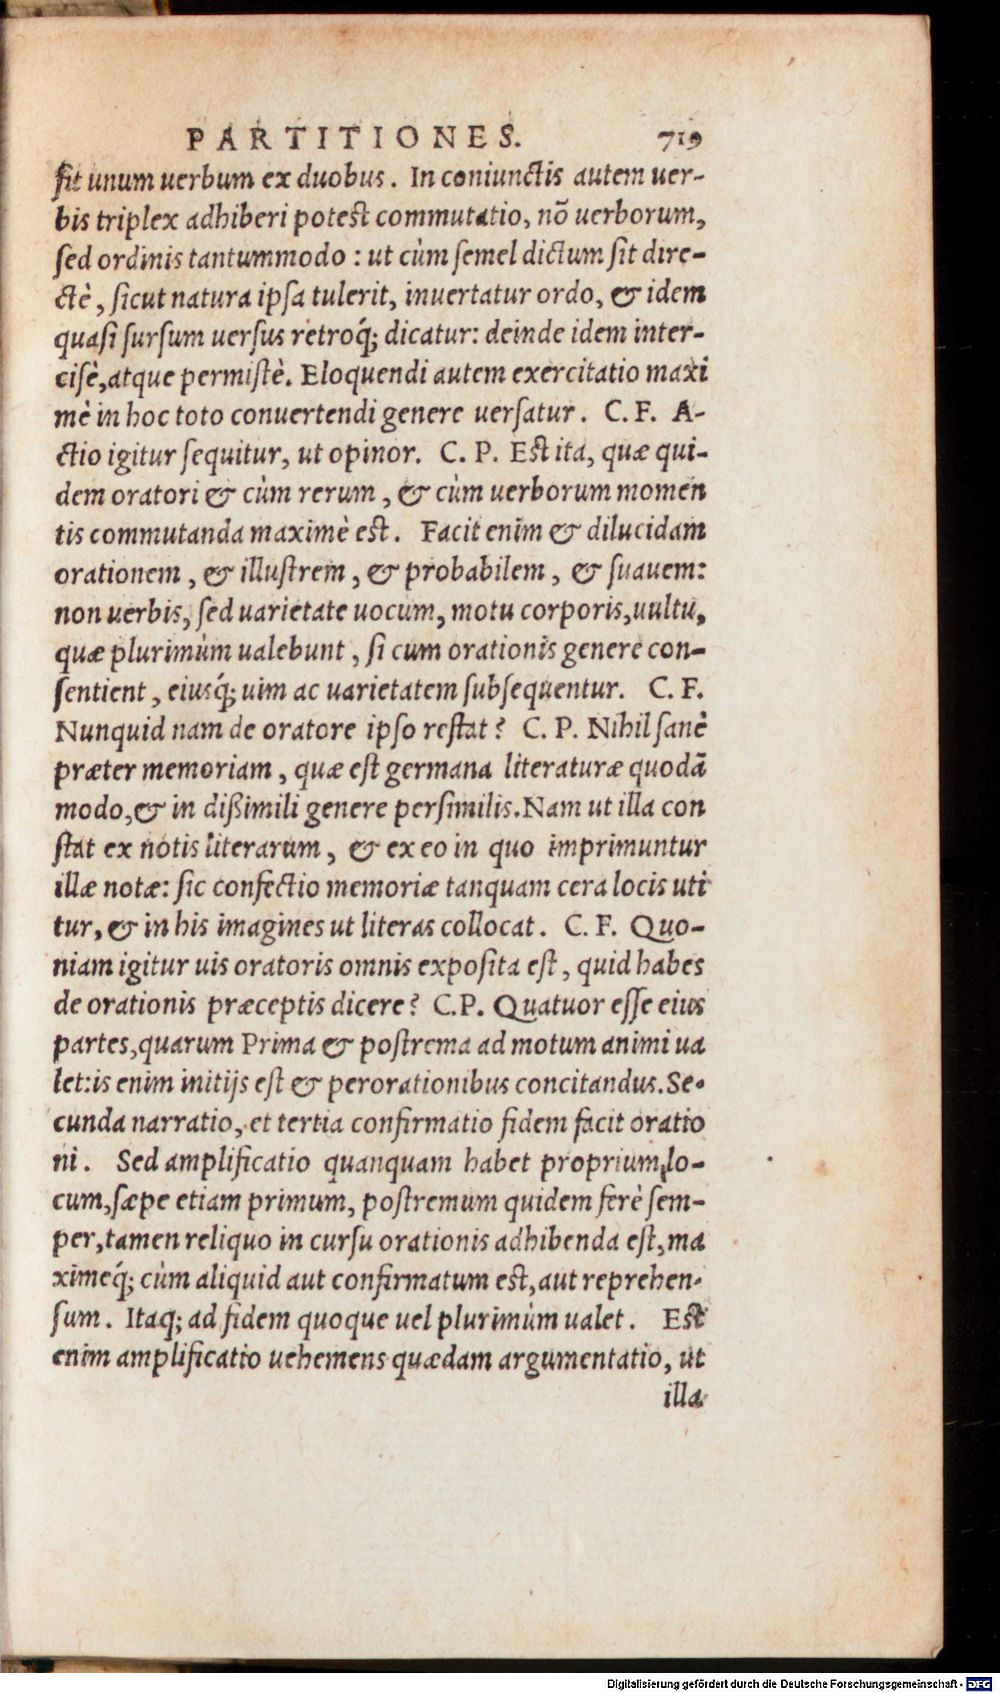 PARTITIONES. 719
fit unum uerbum ex duobus. In coniunctis autem uer-
bis triplex adhiberi potest commutatio, nõ uerborum,
sed ordinis tantummodo : ut cùm semel dictum sit dire-
ctè, sicut natura ipsa tulerit, inuertatur ordo, & idem
quasi sursum uersus retroq́; dicatur: deinde idem inter-
cisè, atque permistè. Eloquendi autem exercitatio maxi
mè in hoc toto conuertendi genere uersatur. C. F. A-
ctio igitur sequitur, ut opinor. C. P. Est ita, quæ qui-
dem oratori & cùm rerum, & cùm uerborum momen
tis commutanda maximè est. Facit enim & dilucidam
orationem, & illustrem, & probabilem, & suauem:
non uerbis, sed uarietate uocum, motu corporis, uultu,
quæ plurimùm ualebunt, si cum orationis genere con-
sentient, eiusq́; uim ac uarietatem subsequentur. C. F.
Nunquid nam de oratore ipso restat? C. P. Nihil sanè
præter memoriam, quæ est germana literaturæ quodã
modo, & in dißimili genere persimilis. Nam ut illa con
stat ex notis literarum, & ex eo in quo imprimuntur
illæ notæ: sic confectio memoriæ tanquam cera locis uti
tur, & in his imagines ut literas collocat. C. F. Quo-
niam igitur uis oratoris omnis exposita est, quid habes
de orationis præceptis dicere? C.P. Quatuor esse eius
partes, quarum Prima & postrema ad motum animi ua
let: is enim initijs est & perorationibus concitandus. Se-
cunda narratio, et tertia confirmatio fidem facit oratio
ni. Sed amplificatio quanquam habet proprium lo-
cum, sæpe etiam primum, postremum quidem ferè sem-
per, tamen reliquo in cursu orationis adhibenda est, ma
ximeq́; cùm aliquid aut confirmatum est, aut reprehen-
sum. Itaq; ad fidem quoque uel plurimùm ualet. Est
enim amplificatio uehemens quædam argumentatio, ut
illa
Digitalisierung gefördert durch die Deutsche Forschungsgemeinschaft - DFG